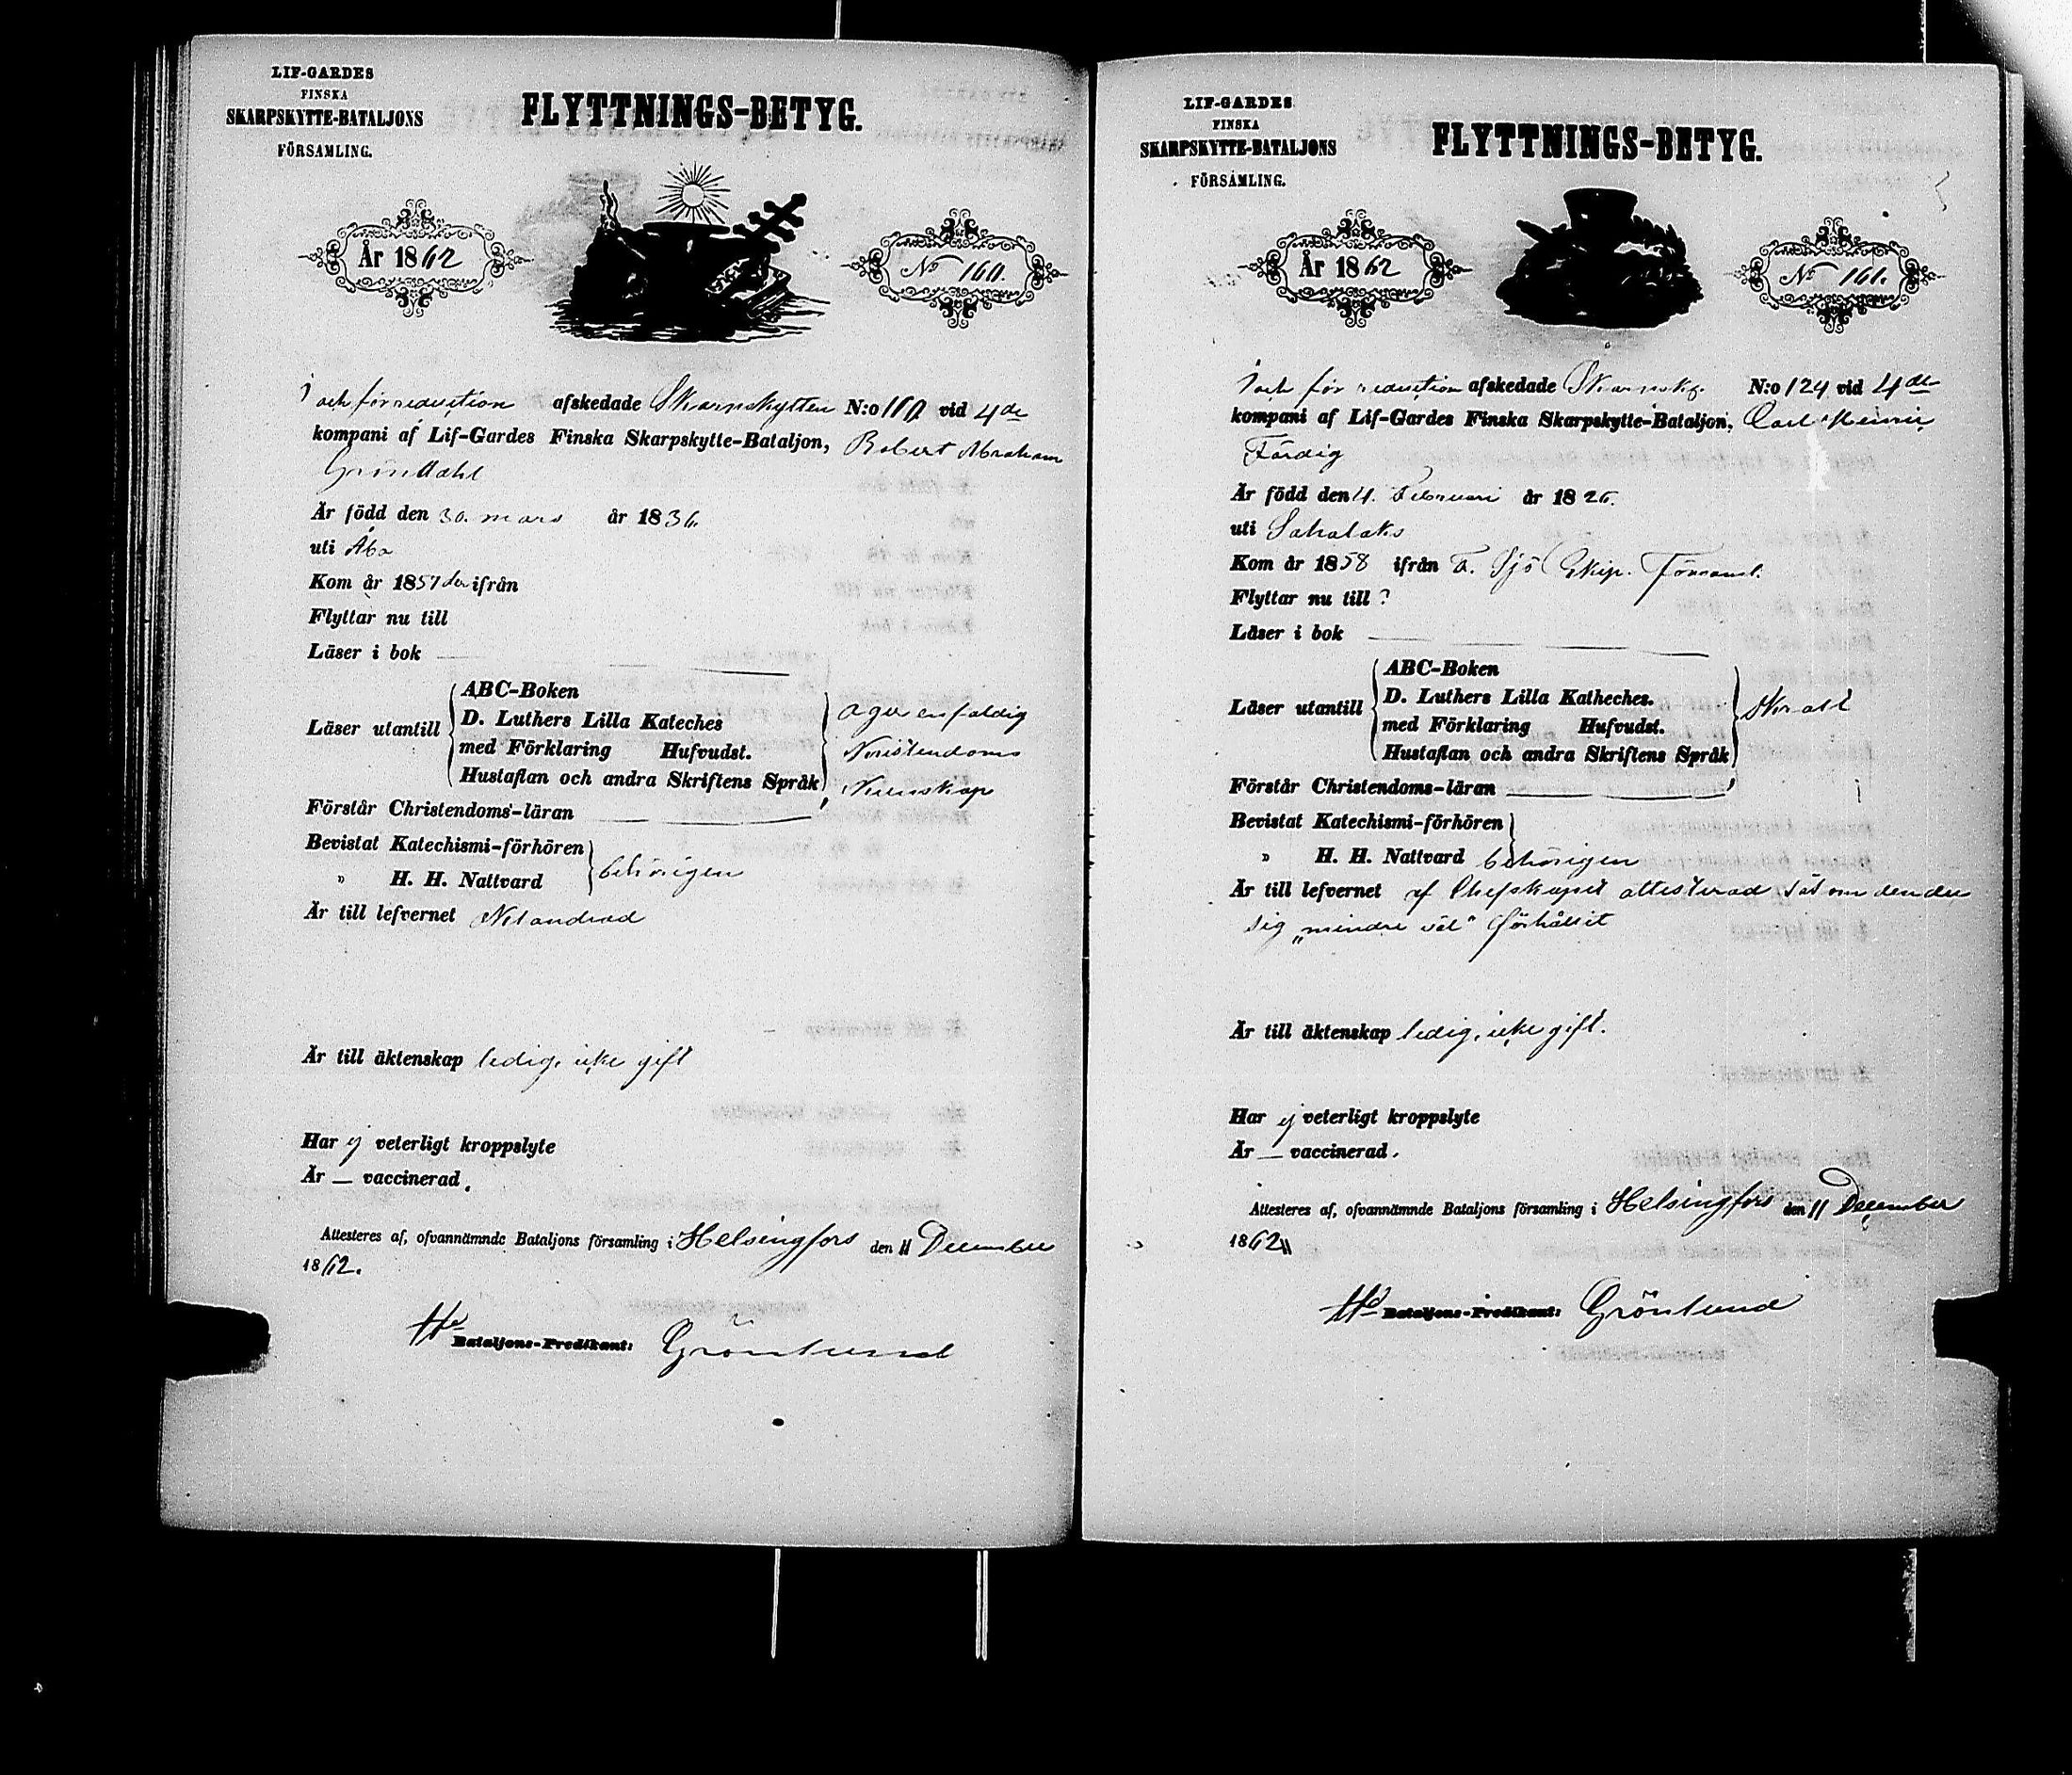 LIF-GARDES
FINSKA
SKARPSKYTTE-BATALJONS
FÖRSAMLING.
FLYTTNINGS-BETYG.
År 1862
No 160.
I och för reduction afskedade Skarpskytten N:o vid 4de
kompani af Lif-Gardes Finska Skarpskytte-Bataljon, Robert Abraham
Gröndahl
Är född den 30. mars år 1836.
uti Åbo
Kom år 1857 ifrån
Flyttar nu till
Läser i bok
Läser utantill
ABC-Boken
D. Luthers Lilla Kateches
med Förklaring Hufvudst.
Hustaflan och andra Skriftens Språk
äger enfaldig
Kristendoms
Kunskap
Förstår Christendoms-läran
Bevistat Katechismi-förhören
" H. H. Nattvard
behörigen
Är till lefvernet Oklandrad
Är till äktenskap ledig, icke gift
Har ej veterligt kroppslyte
Är — vaccinerad.
Attesteras af, ofvannämnde Bataljons församling i Helsingfors den 11 December
1862.
Bataljons-Predikant: Grönlund
LIF-GARDES
FINSKA
SKARPSKYTTE-BATALJONS
FÖRSAMLING.
FLYTTNINGS-BETYG.
År 1862
No 161.
I och för reduction afskedade Skarpsk. N:o 124 vid 4de
kompani af Lif-Gardes Finska Skarpskytte-Bataljon, Carl Henric
Färdig
Är född den 4. Februari år 1826.
uti Sahalaks
Kom år 1858 ifrån F. Sjö Ekip. Församl.
Flyttar nu till ?
Läser i bok
Läser utantill
ABC-Boken
D. Luthers Lilla Katheches.
med Förklaring Hufvudst.
Hustaflan och andra Skriftens Språk
Skralt
Förstår Christendoms-läran
Bevistat Katechismi-förhören
" H. H. Nattvard behörigen
Är till lefvernet af Chefskapet attesterad såsom den der
sig „mindre väl" förhållit
Är till äktenskap ledig, icke gift.
Har ej veterligt kroppslyte
Är — vaccinerad.
Attesteres af, ofvannämnde Bataljons församling i Helsingfors den 11 December
1862
Bataljons-Predikant: Grönlund